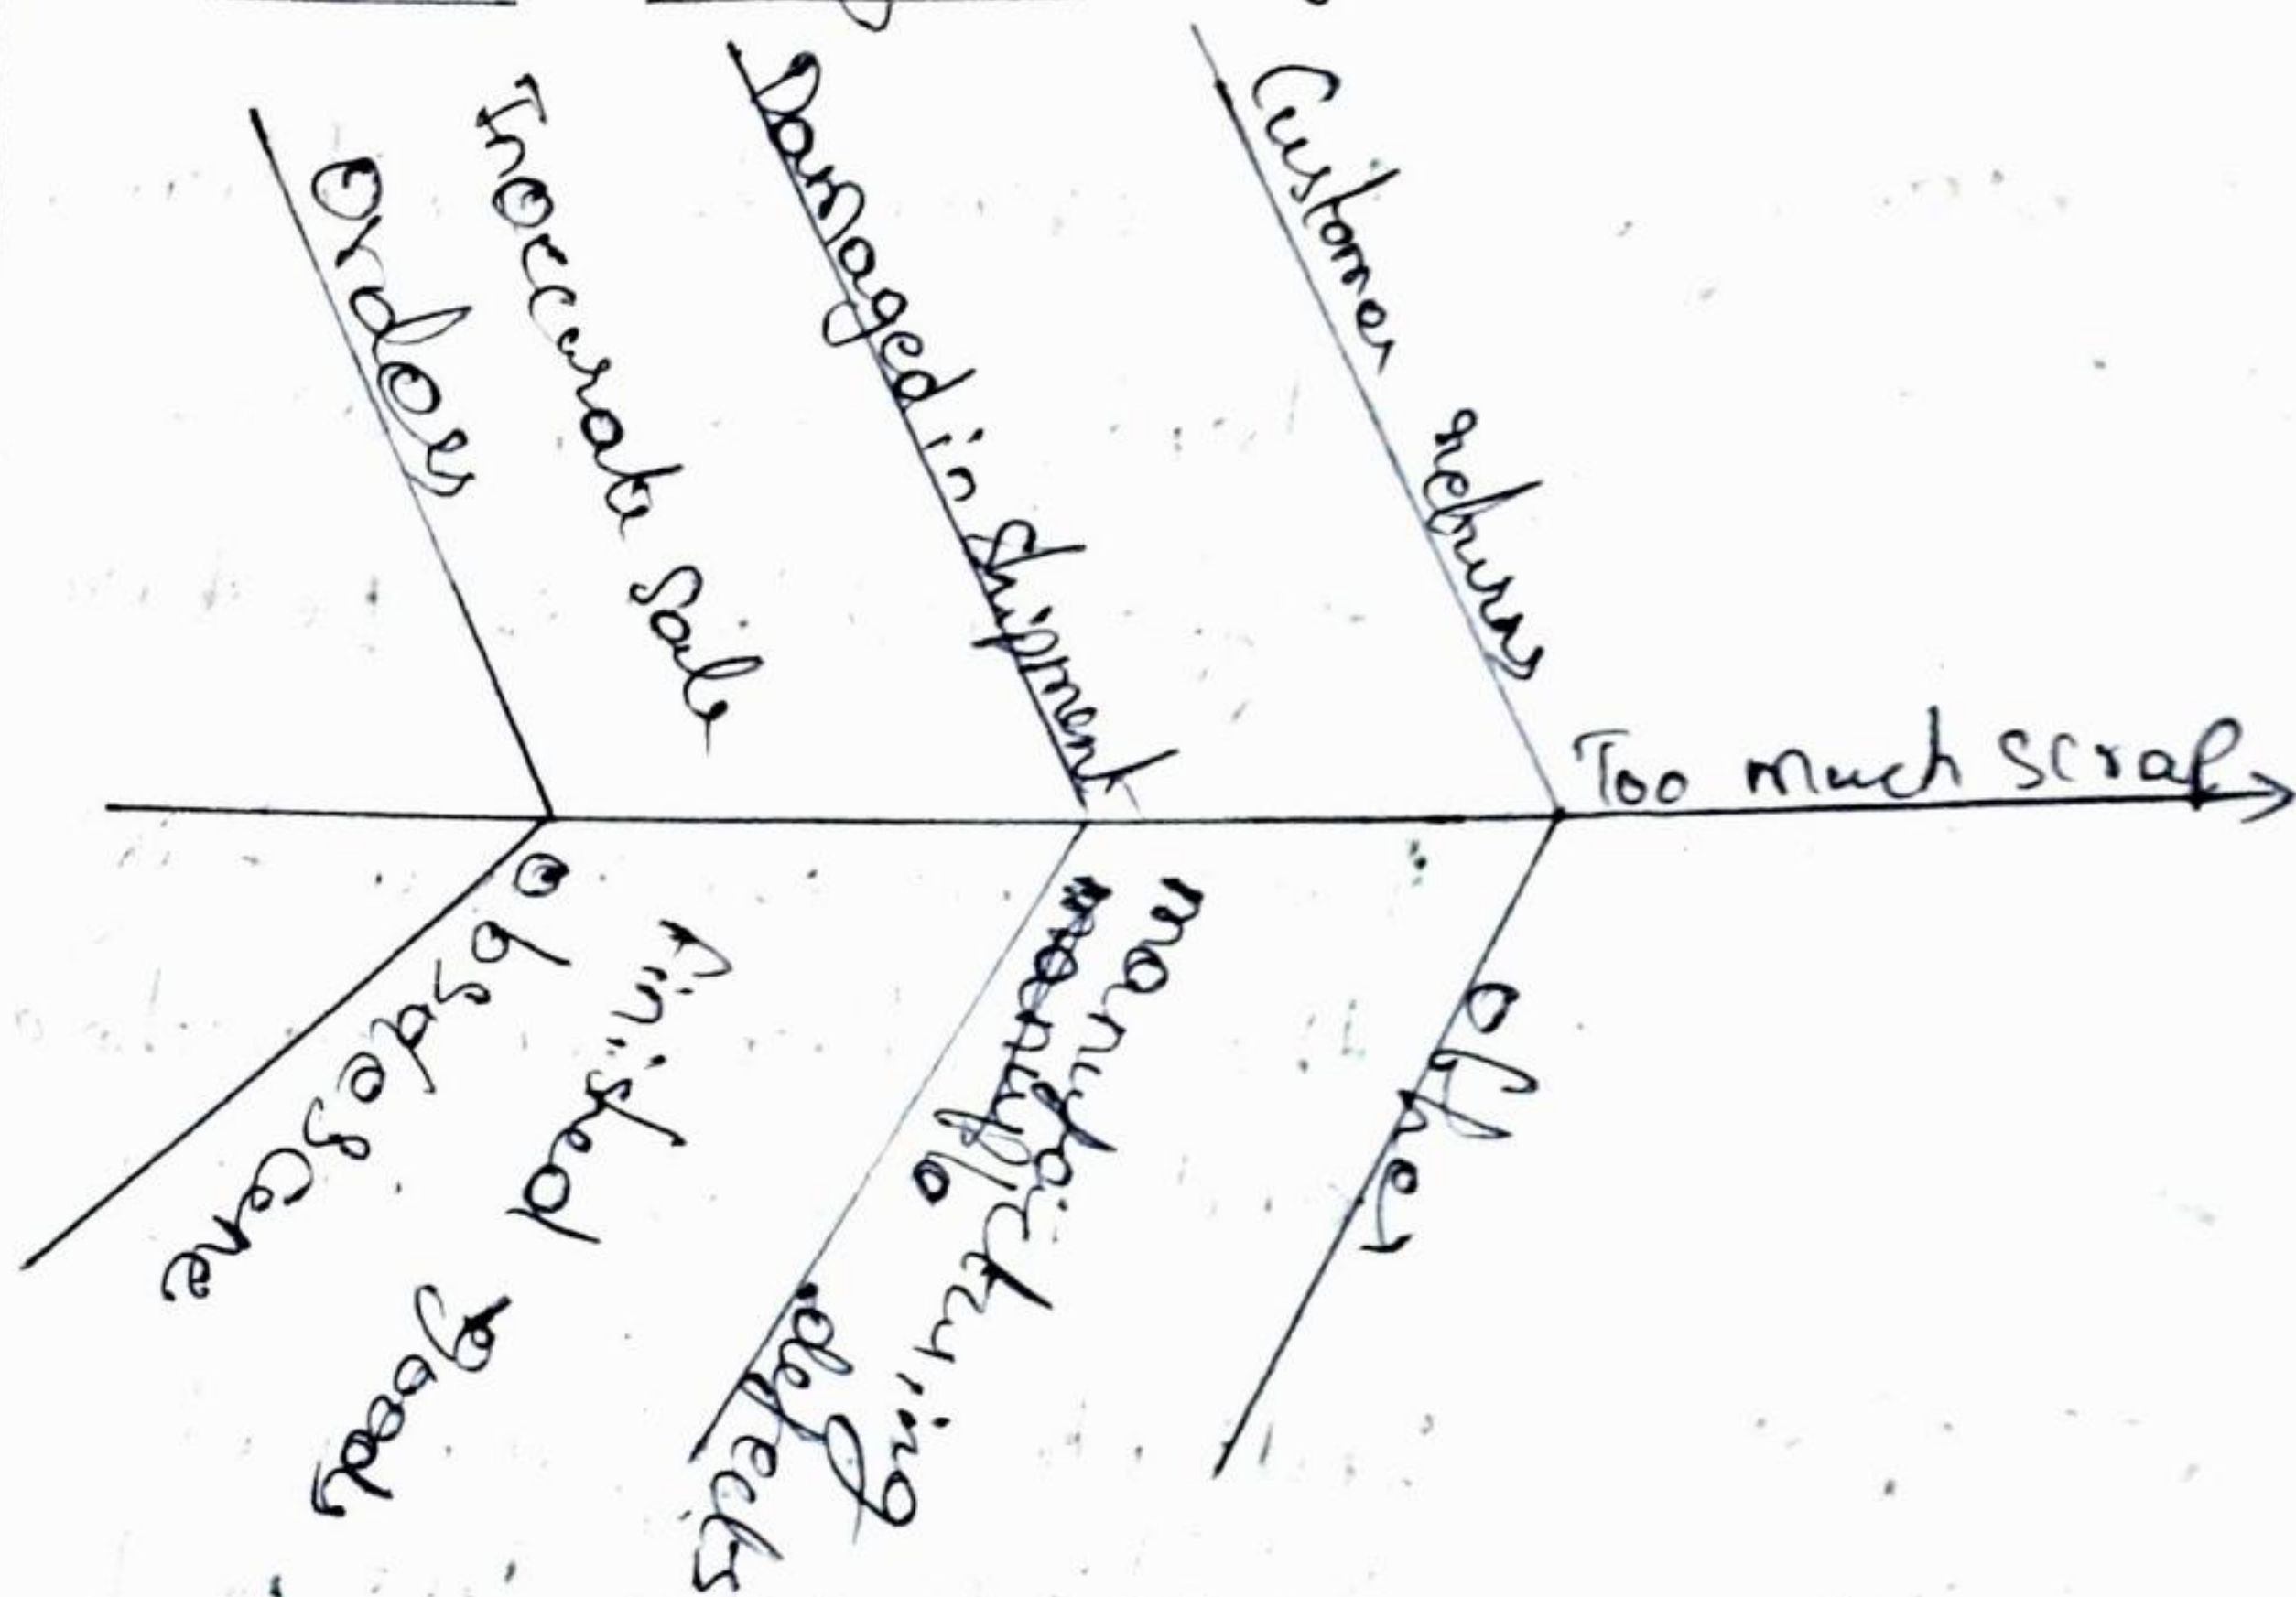 Orders
Inaccurate Sale
Damaged in Shipment
Customer returns
Too much scrap
obsolescene
finished
goods
manufacturing
defects
other